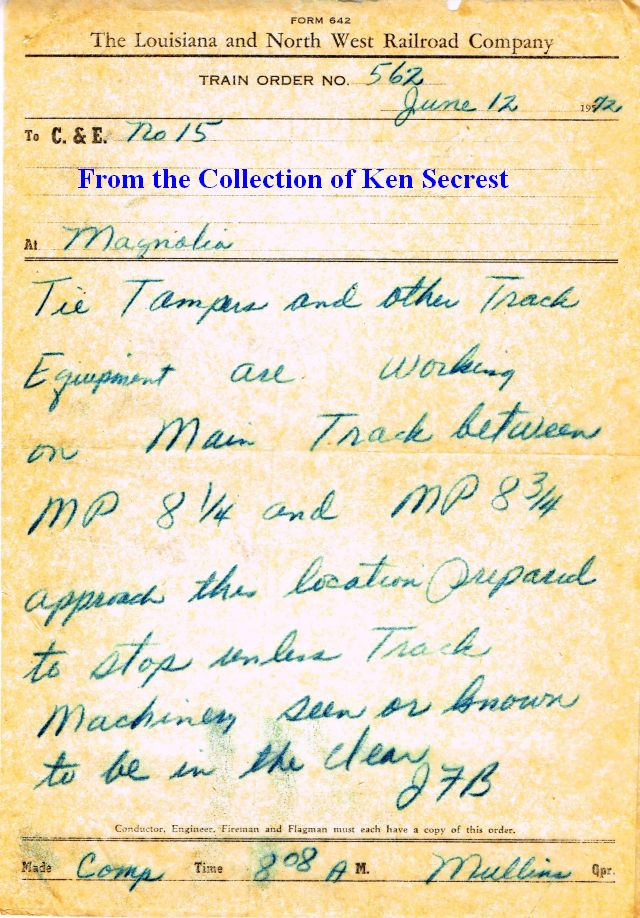 FORM 642
The Louisiana and North West Railroad Company
TRAIN ORDER NO. 562
June 12 1972
To C. & E. No 15
From the Collection of Ken Secrest
At Magnolia
Tie Tampers and other Track
Equipment are working
on Main Track between
MP 8 1/4 and MP 8 3/4
approach this location prepared
to stop unless Track
Machinery seen or known
to be in the clear
JFB
Conductor, Engineer, Fireman and Flagman must each have a copy of this order.
Made Comp Time 8 08 A M. Mullins Opr.